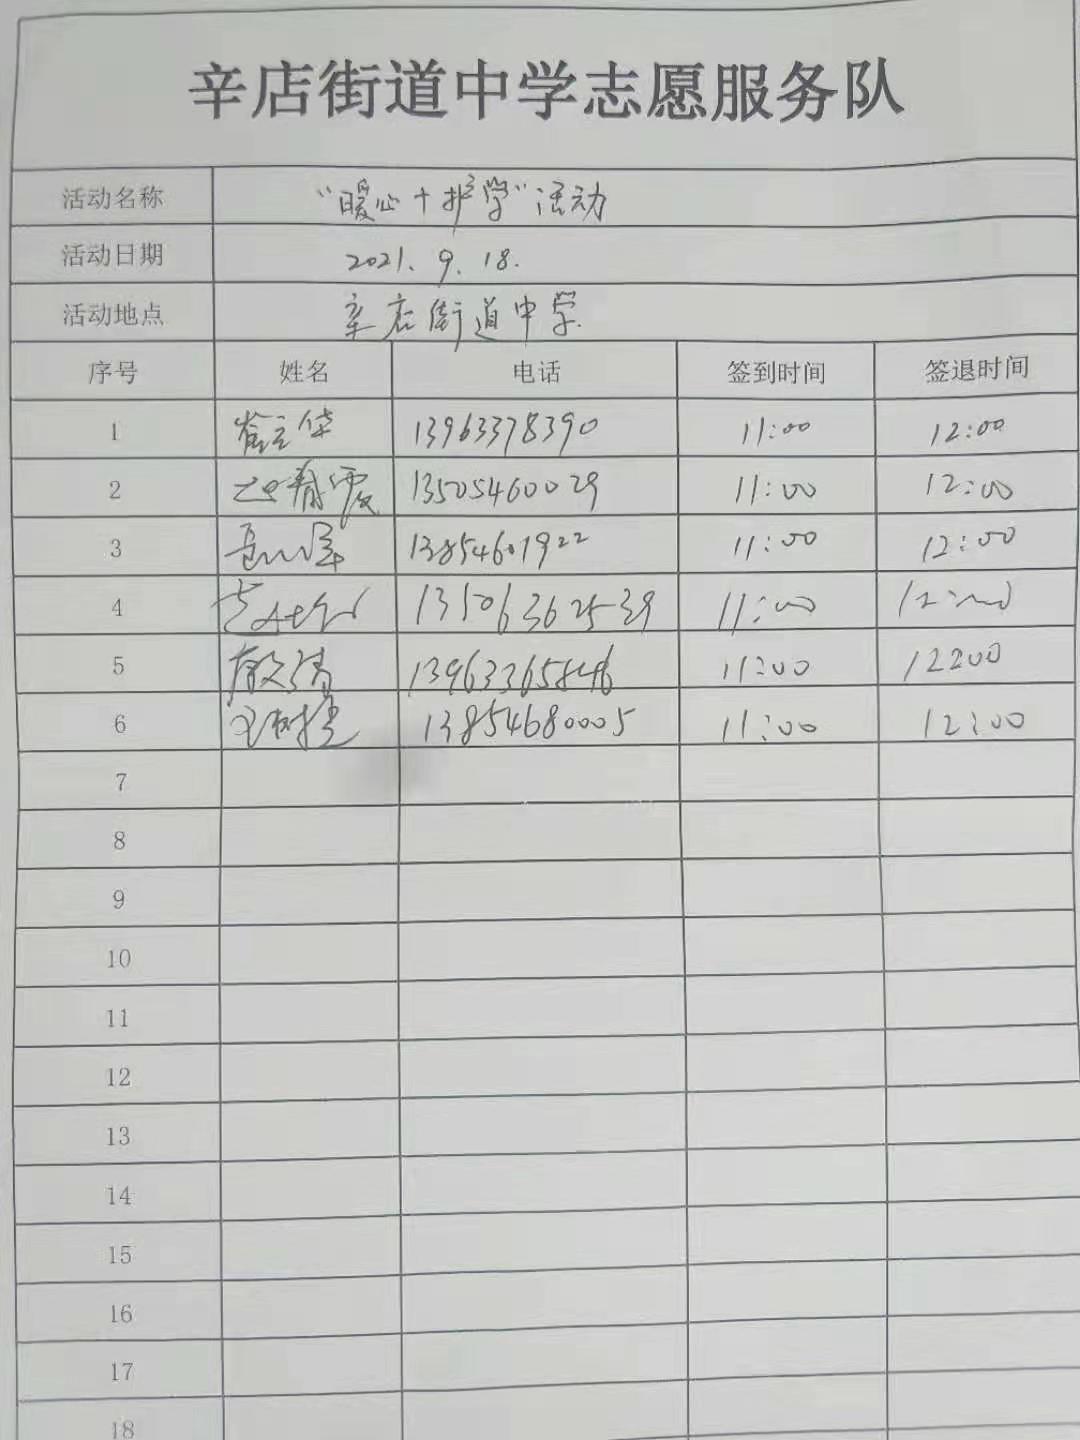 辛店街道中学志愿服务队
活动名称 “暖心+护学”活动
活动日期 2021.9.18.
活动地点 辛店街道中学
序号 姓名 电话 签到时间 签退时间
1 崔立华 13963378390 11:00 12:00
2 13505460029 11:00 12:00
3 13854601922 11:00 12:00
4 13506362539 11:00 12:00
5 13963365846 11:00 12:00
6 13854680005 11:00 12:00
7
8
9
10
11
12
13
14
15
16
17
18